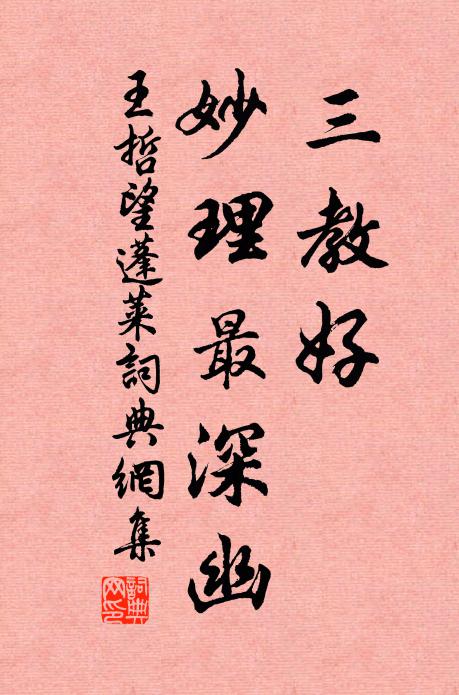 三教好
妙理最深幽
王哲望蓬莱詞典網集
詞典
网印